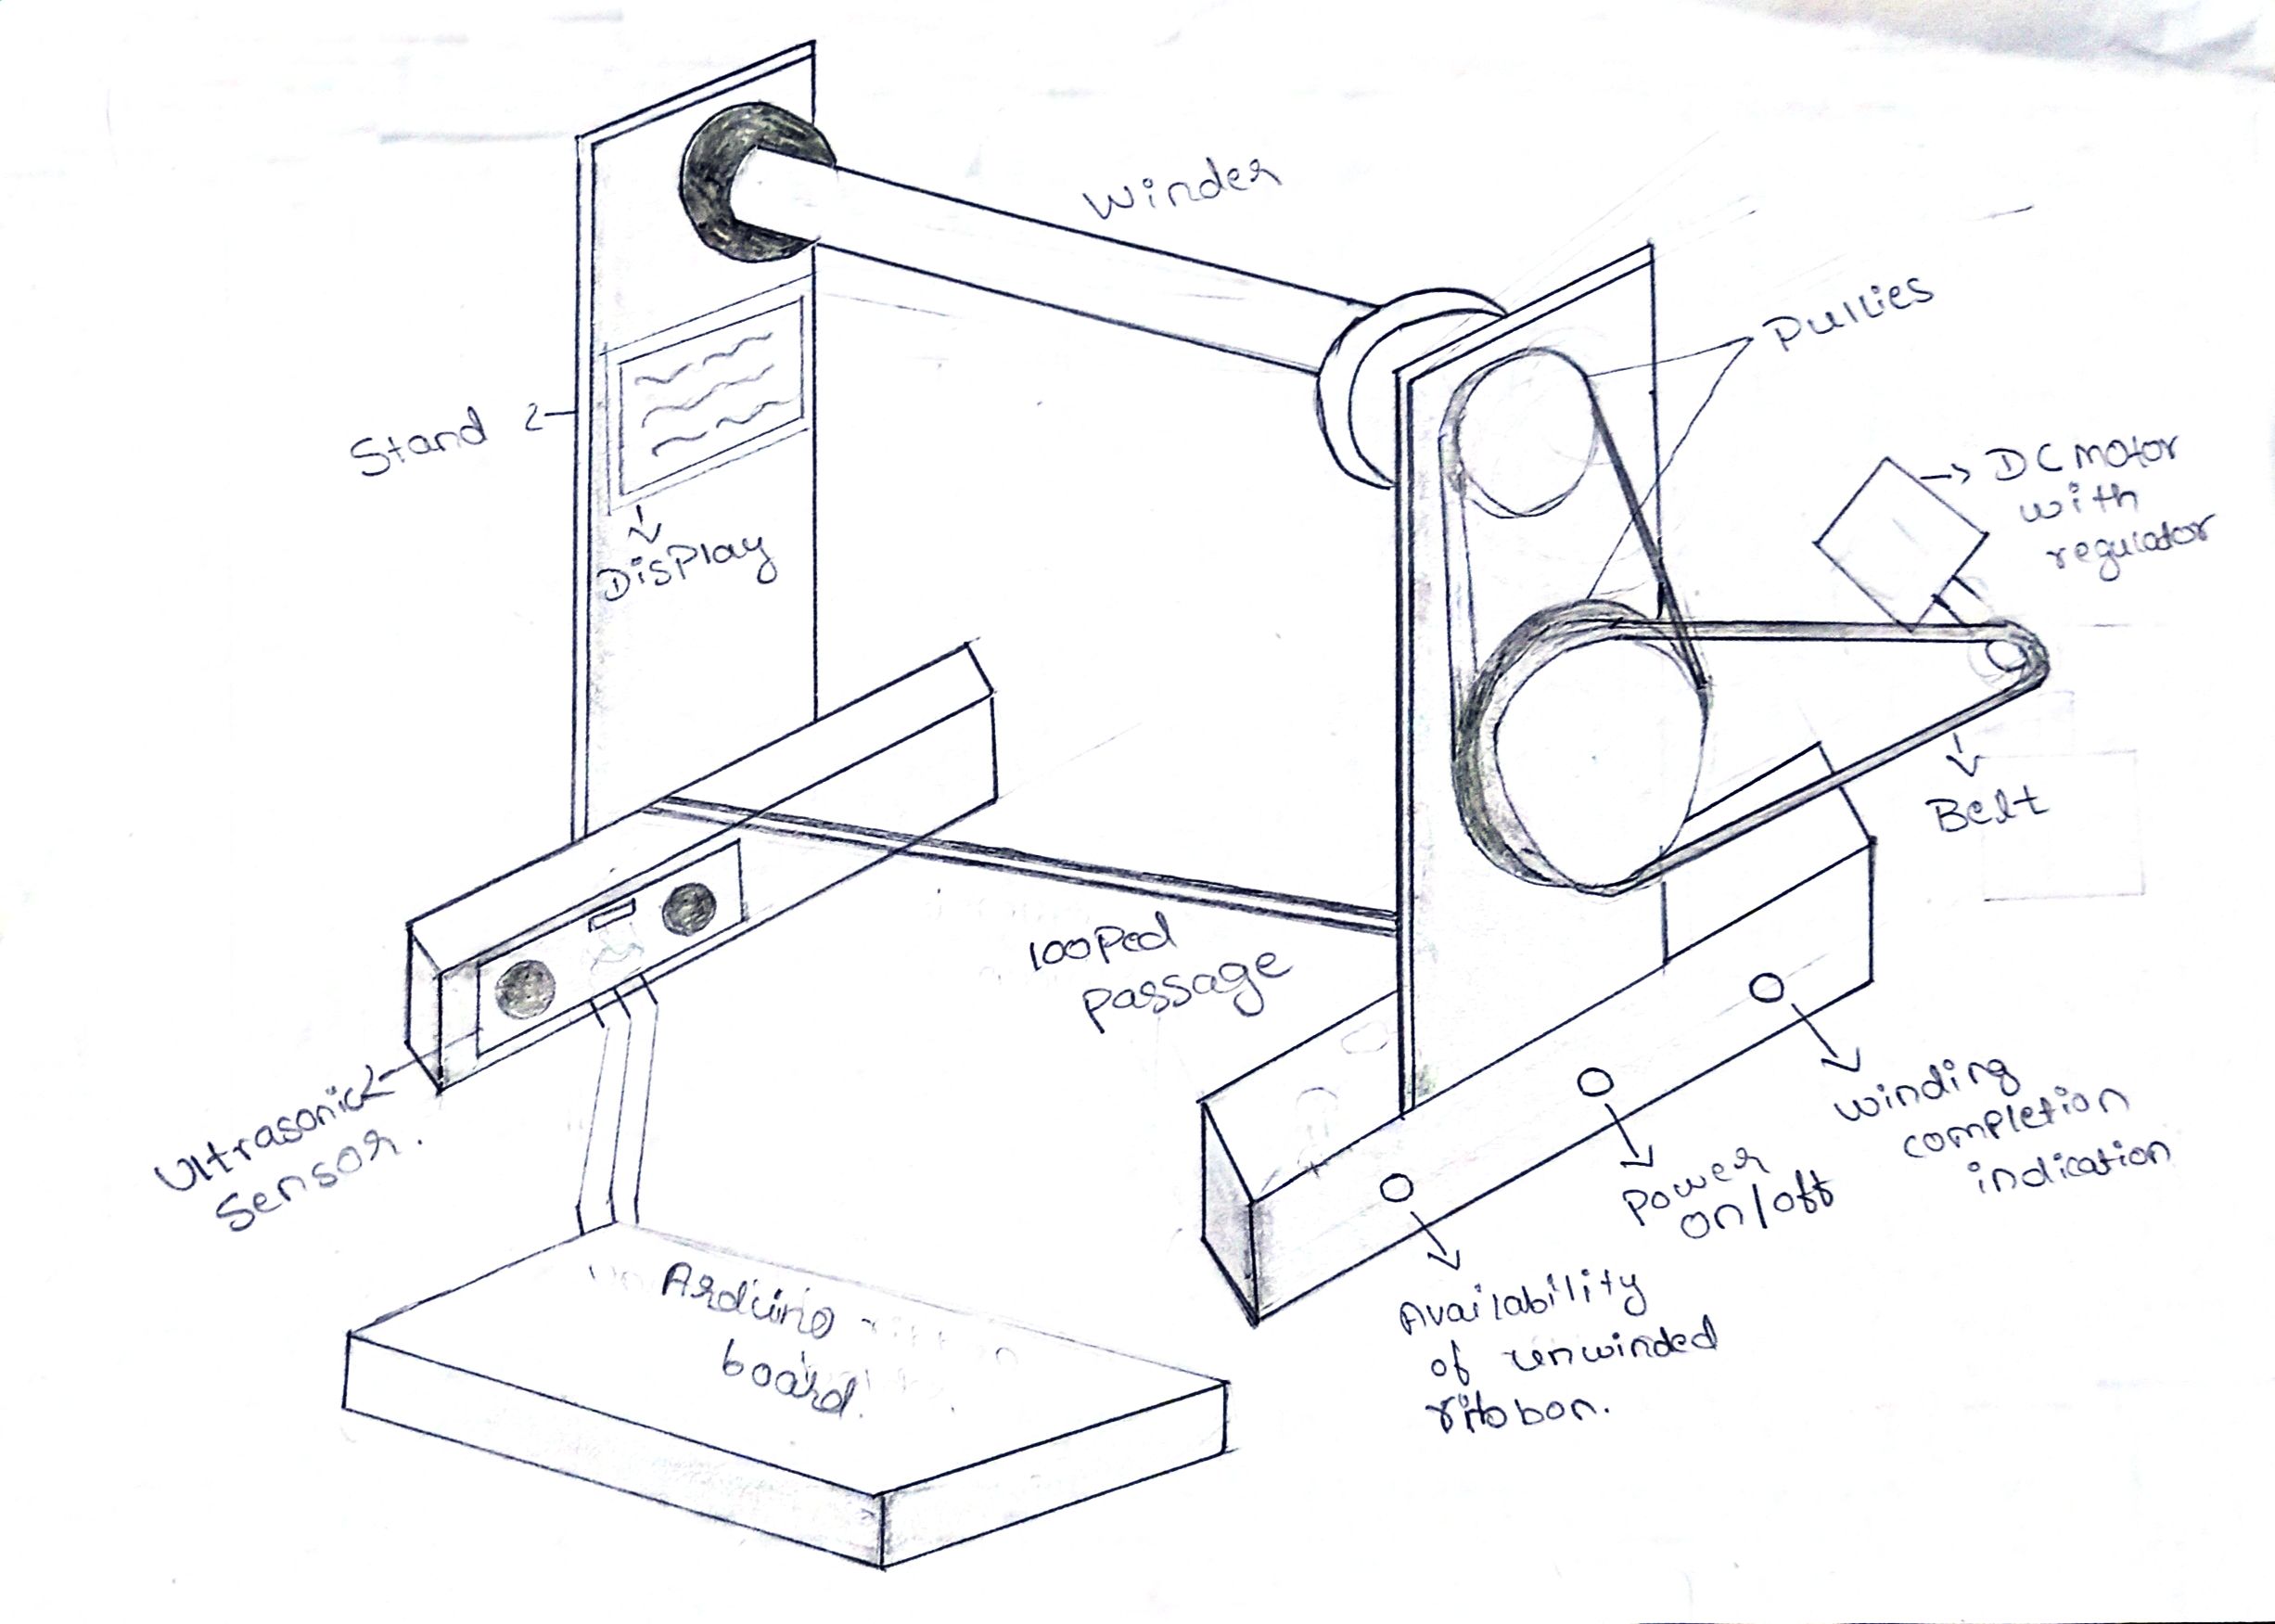 Winder
Pullies
Stand
DC motor
with
regulator
Display
Belt
looped
passage
Ultrasonic
Sensor.
winding
completion
indication
Power
on/off
Availability
of unwinded
ribbon.
Arduino
board.